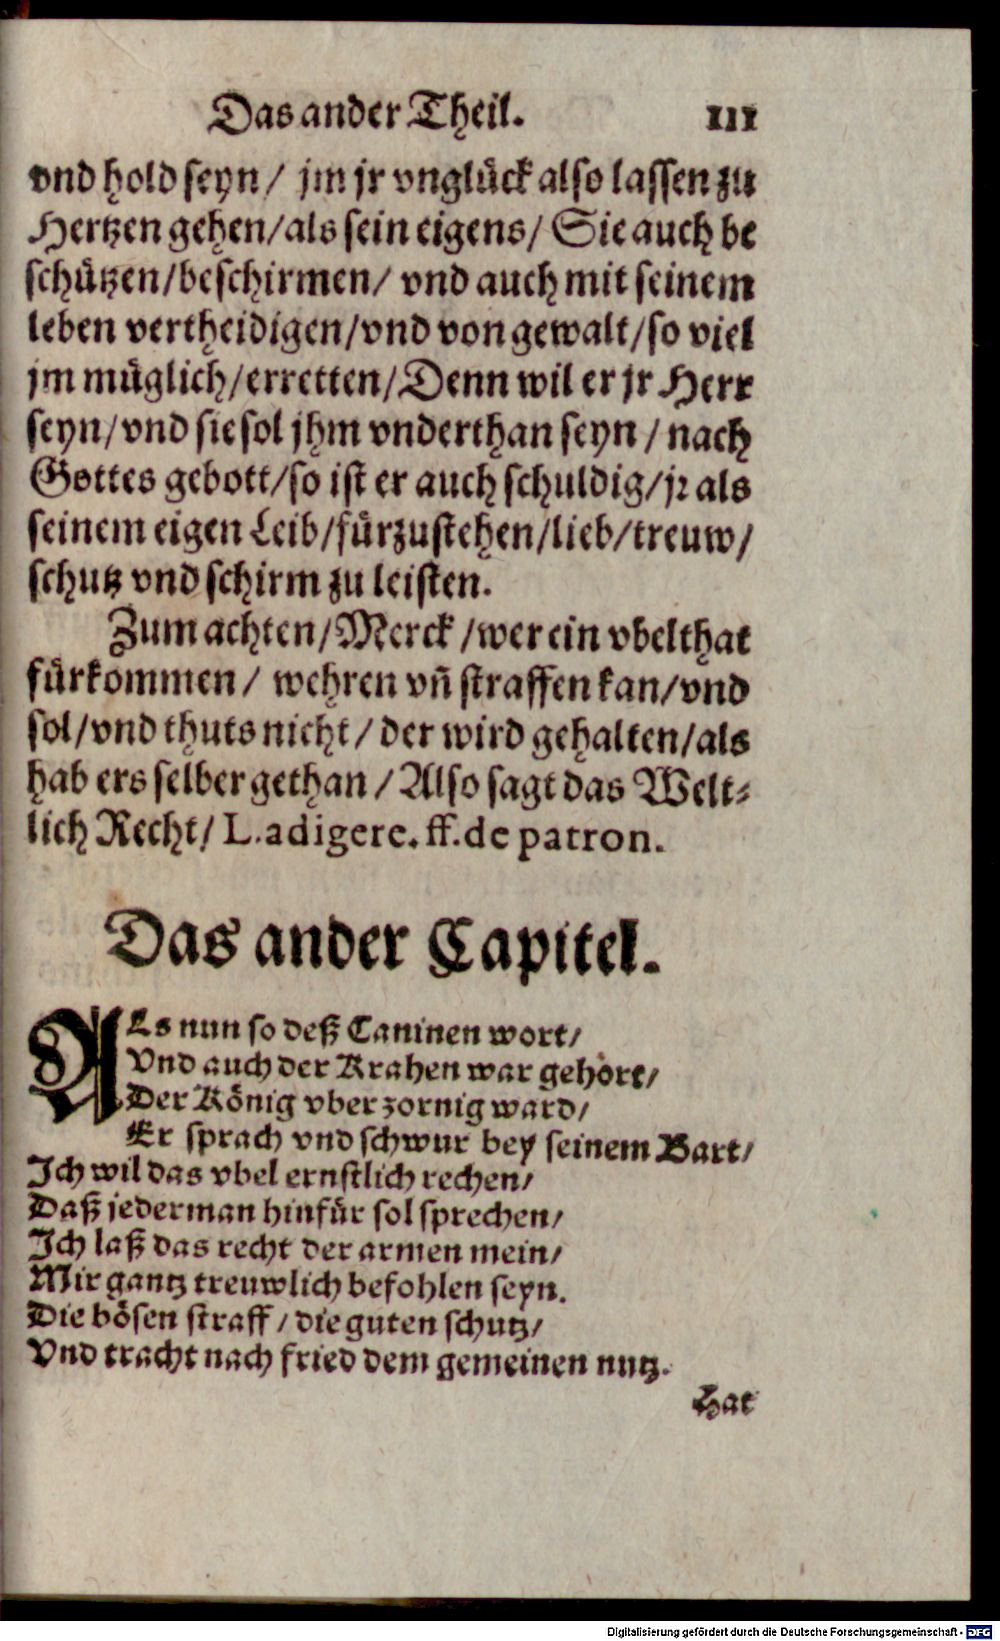 Das ander Theil. 111
vnd hold seyn / jm jr vnglück also lassen zu
Hertzen gehen/als sein eigens/ Sie auch be
schützen/beschirmen/ vnd auch mit seinem
leben vertheidigen/vnd von gewalt/so viel
jm müglich/erretten/Denn wil er jr Herr
seyn/vnd sie sol jhm vnderthan seyn / nach
Gottes gebott/so ist er auch schuldig/jr als
seinem eigen Leib/fürzustehen/lieb/treuw/
schutz vnd schirm zu leisten.
Zum achten/Merck /wer ein vbelthat
fürkommen / wehren vñ straffen kan/vnd
sol/vnd thuts nicht / der wird gehalten/als
hab ers selber gethan / Also sagt das Welt⸗
lich Recht/ L.adigere.ff.de patron.
Das ander Capitel.
ALs nun so deß Caninen wort/
Vnd auch der Krahen war gehört/
Der König vber zornig ward/
Er sprach vnd schwur bey seinem Bart/
Ich wil das vbel ernstlich rechen/
Daß jederman hinfür sol sprechen/
Ich laß das recht der armen mein/
Mir gantz treuwlich befohlen seyn.
Die bösen straff / die guten schutz/
Vnd tracht nach fried dem gemeinen nutz.
Hat
Digitalisierung gefördert durch die Deutsche Forschungsgemeinschaft - DFG